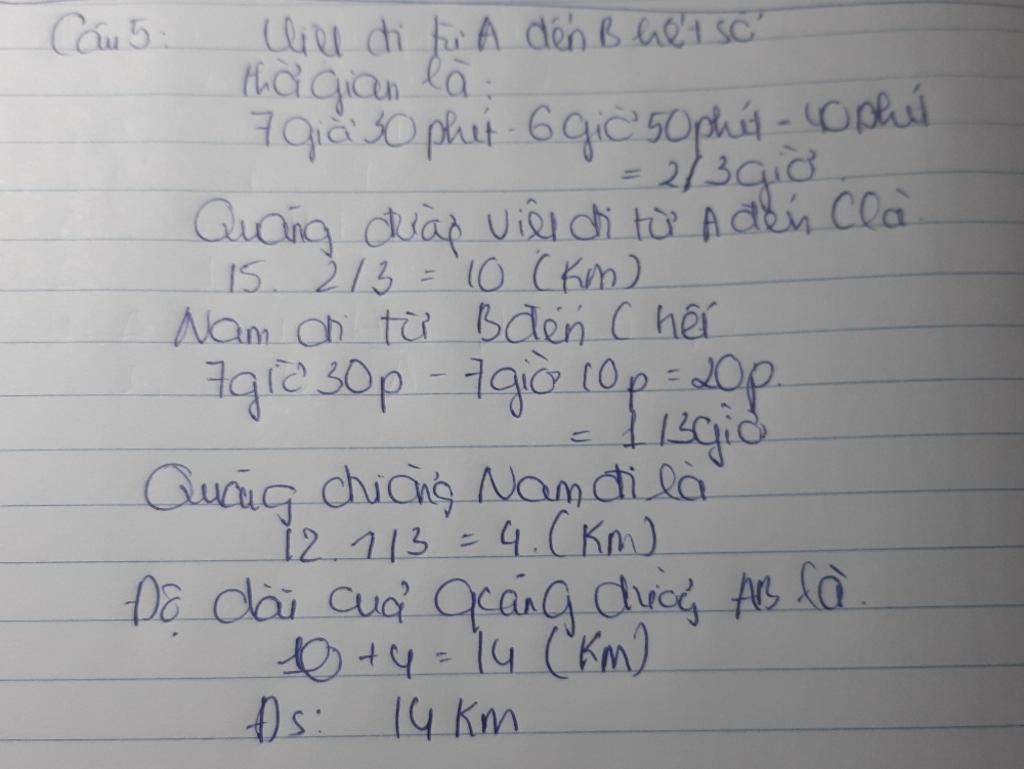 Câu 5: Việt đi từ A đến B hết số
thời gian là:
7giờ 30 phút - 6giờ 50 phút - 40 phút
= 2/3 giờ.
Quãng đường Việt đi từ A đến C là
15. 2/3 = 10 (Km)
Nam đi từ B đến C hết
7giờ 30p - 7giờ 10p = 20p.
= 1/3giờ
Quãng đường Nam đi là
12. 1/3 = 4. (Km)
Độ dài của Quãng đường AB là.
10 + 4 = 14 (Km)
Đs: 14 Km